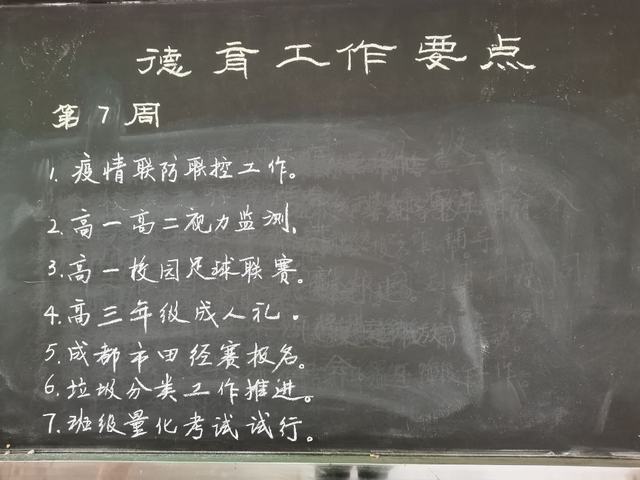 德育工作要点
第7周
1. 疫情联防联控工作。
2. 高一高二视力监测。
3. 高一校园足球联赛。
4. 高三年级成人礼。
5. 成都市田径赛报名。
6. 垃圾分类工作推进。
7. 班级量化考试试行。